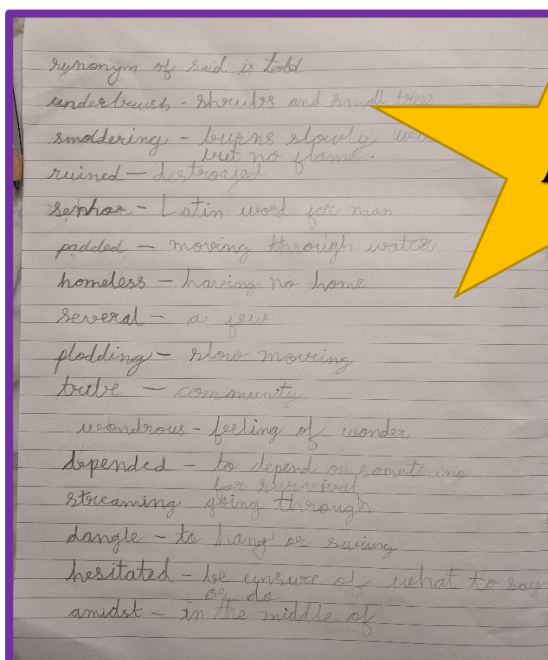 synonym of said is told
underbrush - shrubs and small trees
smoldering - burns slowly
but no flame.
ruined - destroyed
senhor - Latin word for man
padded - moving through water
homeless - having no home
several - a few
plodding - slow moving
tribe - community
wondrous - feeling of wonder
depended - to depend on something
for survival
streaming going through
dangle - to hang or swing
hesitated - be unsure of what to say
or do
amidst - in the middle of